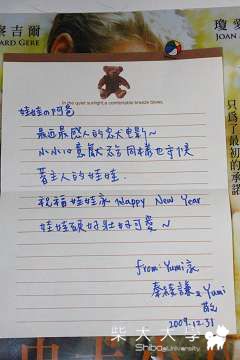 察吉爾
ARD GERE
瓊愛
JOAN
只為了最初的承諾
In the quiet sunlight,a comfortable breeze blows.
娃娃の阿爸
最近最感人的忠犬電影~
小小口意獻給同樣也守候
著主人的娃娃.
祝福娃娃家 Happy New Year
娃娃頭好壯壯好可愛~
from: Yumi家
Yumi
2009.12.31
柴犬大學
Shiba University